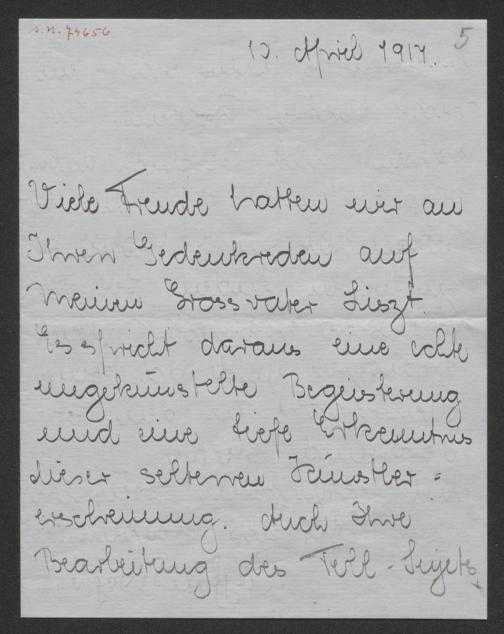 s.n. 74656
5
13. April 1917.
Viele Freude hatten wir an
Ihren Gedenkreden auf
meinen Grossvater Liszt.
Es spricht daraus eine echte
ungekünstelte Begeisterung
und eine tiefe Erkenntnis
dieser seltenen Künstler=
erscheinung. Auch Ihre
Bearbeitung des Tell-Sujets